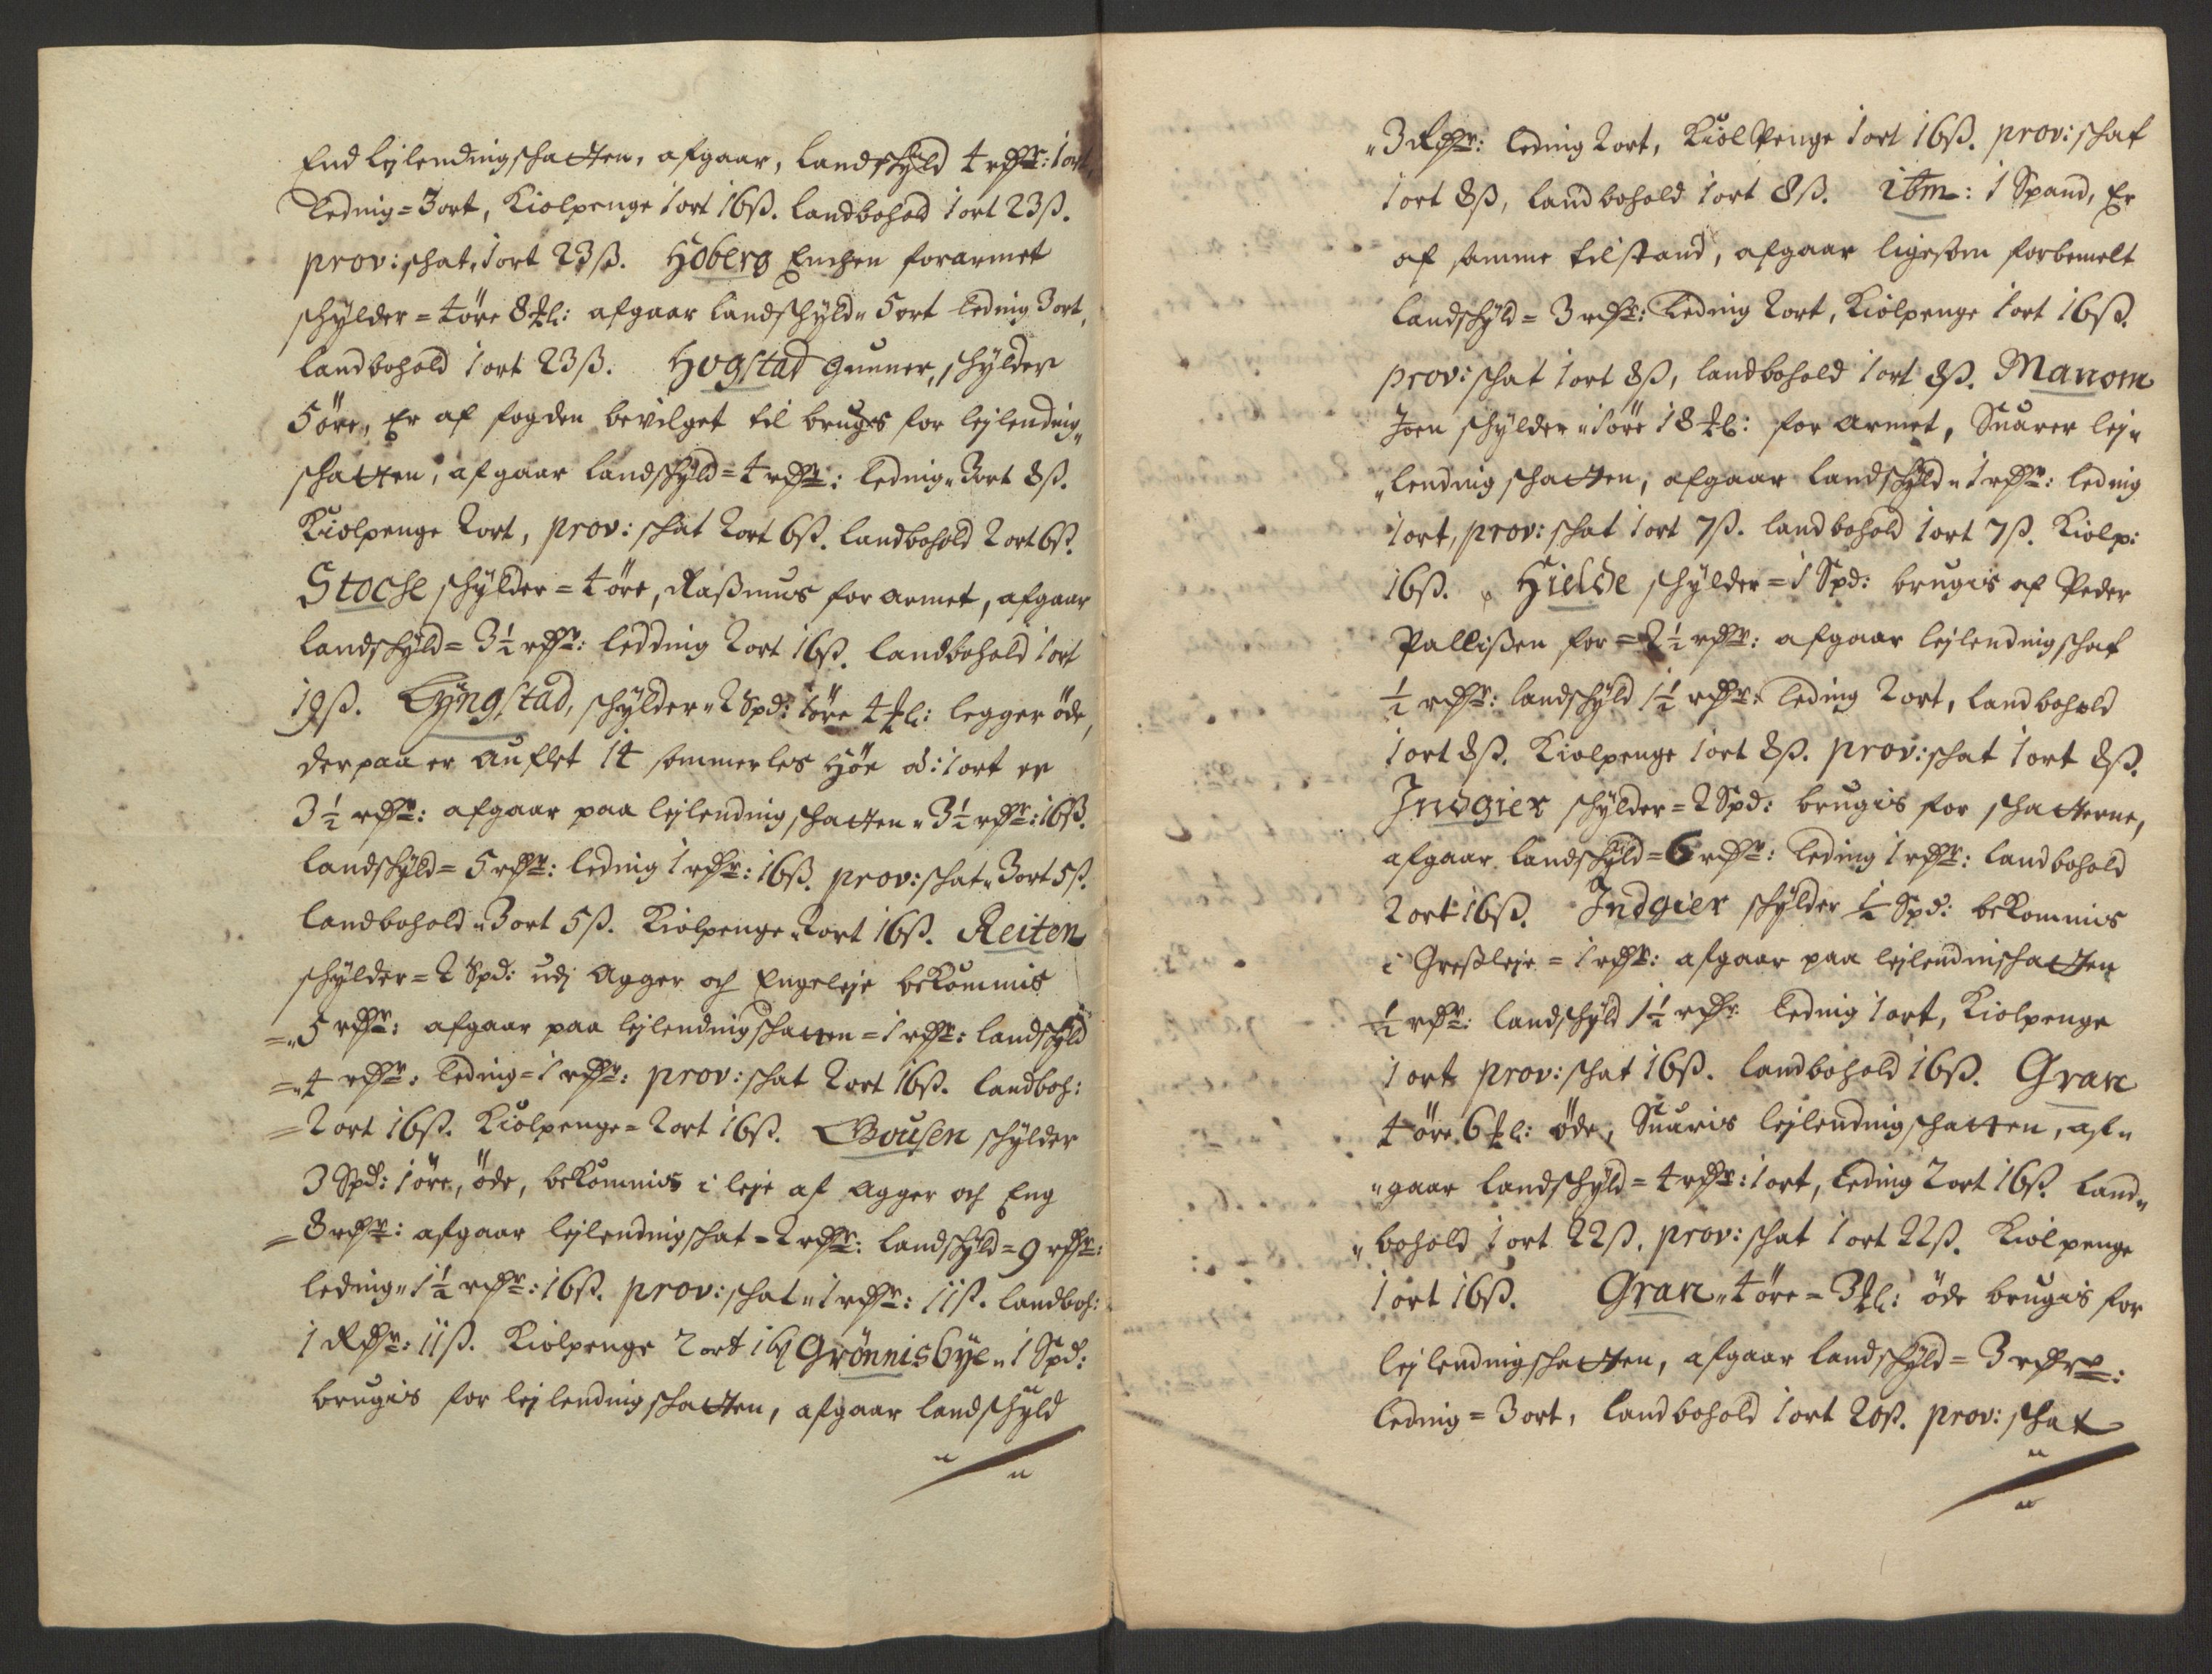 End lejlendingschatten, afgaar, landschÿld 4 rdr: 1 ort,
Leding = 3 ort, Kiolpenge 1 ort 16ß. landbohold 1 ort 23ß.
prov: schat, 1 ort 23ß. Hoberg Enchen forarmet
schÿlder = 4 öre 8 : afgaar landschÿld 5 ort leding 3 ort,
landbohold 1 ort 23ß. Hogstad Gunner, schÿlder
5 öre, Er af fogden bevilget til brugs for lejlending
schatten, afgaar landschÿld = 4 rdr: leding 3 ort 8ß.
Kiolpenge 2 ort, prov: schat 2 ort 6ß. landbohold 2 ort 6ß.
Stoche schÿlder = 4 öre, Raßmus for armet, afgaar
landschÿld = 3½ rdr: ledding 2 ort 16ß. landbohold 1 ort
19ß. Lÿngstad, schÿlder 2 Spd: 1 öre 4 : legger öde,
derpaa er auflet 14 sommerles Höe à: 1 ort er
3½ rdr: afgaar paa lejlendingschatten 3½ rdr: 16ß.
landschÿld = 5 rdr: leding 1 rdr: 16ß. prov: schat 3 ort 5ß.
landbohold 3 ort 5ß. Kiolpenge 2 ort 16ß. Reiten
schÿlder = 2 Spd: udj Agger och Engeleje bekommis
= 5 rdr: afgaar paa lejlendingschatten = 1 rdr: landschÿld
= 4 rdr: leding = 1 rdr: prov: schat 2 ort 16ß. landboh:
= 2 ort 16ß. Kiolpenge = 2 ort 16ß. Gousen schÿlder
3 Spd: 1 öre, öde, bekommis i leje af Agger och Eng
= 8 rdr: afgaar lejlendingschat = 2 rdr: landschÿld = 9 rdr:
leding 1½ rdr: 16ß. prov: schat 1 rdr: 11ß. landboh:
1 Rdr: 11ß. Kiolpenge 2 ort 16ß Grönnisbÿe 1 Spd:
brugis for lejlendingschatten, afgaar landschÿld
3 Rdr: leding 2 ort, Kiolpenge 1 ort 16ß. prov: schat
1 ort 8ß, landbohold 1 ort 8ß. itm: 1 Spand, Er
af samme tilstand, afgaar ligesom forbemelt
landschÿld = 3 rdr: Leding 2 ort, Kiolpenge 1 ort 16ß.
prov: schat 1 ort 8ß, landbohold 1 ort 8ß. Manom
Joen schÿlder 1 öre 18 : for armet, Suarer lej
lending schatten, afgaar landschÿld 1 rdr: leding
1 ort, prov: schat 1 ort 7ß. landbohold 1 ort 7ß. Kiolp:
16ß. Hielde schÿlder = 1 Spd: brugis af Peder
Pallißen for = 2½ rdr: afgaar lejlendingschat
½ rdr: landschÿld 1½ rdr: leding 2 ort, landbohold
1 ort 8ß. Kiolpenge 1 ort 8ß. prov: schat 1 ort 8ß.
Indgier schÿlder = 2 Spd: brugis for schatterne,
afgaar landschÿld = 6 rdr: leding 1 rdr: landbohold
2 ort 16ß. Indgier schÿlder ½ Spd: bekommis
i Greßleje = 1 rdr: afgaar paa lejlendinschatten
½ rdr: landschÿld 1½ rdr leding 1 ort, Kiolpenge
1 ort prov: schat 16ß. landbohold 16ß. Gran
4 öre 6 : öde, Suaris lejlendingschatten, af
gaar landschÿld = 4 rdr: 1 ort, leding 2 ort 16ß. land
bohold 1 ort 22ß, prov: schat 1 ort 22ß. Kiolpenge
1 ort 16ß. Gran 4 öre = 3 : öde brugis for
lejlendingschatten, afgaar landschÿld = 3 rdr:
leding = 3 ort, landbohold 1 ort 20ß. prov: schat